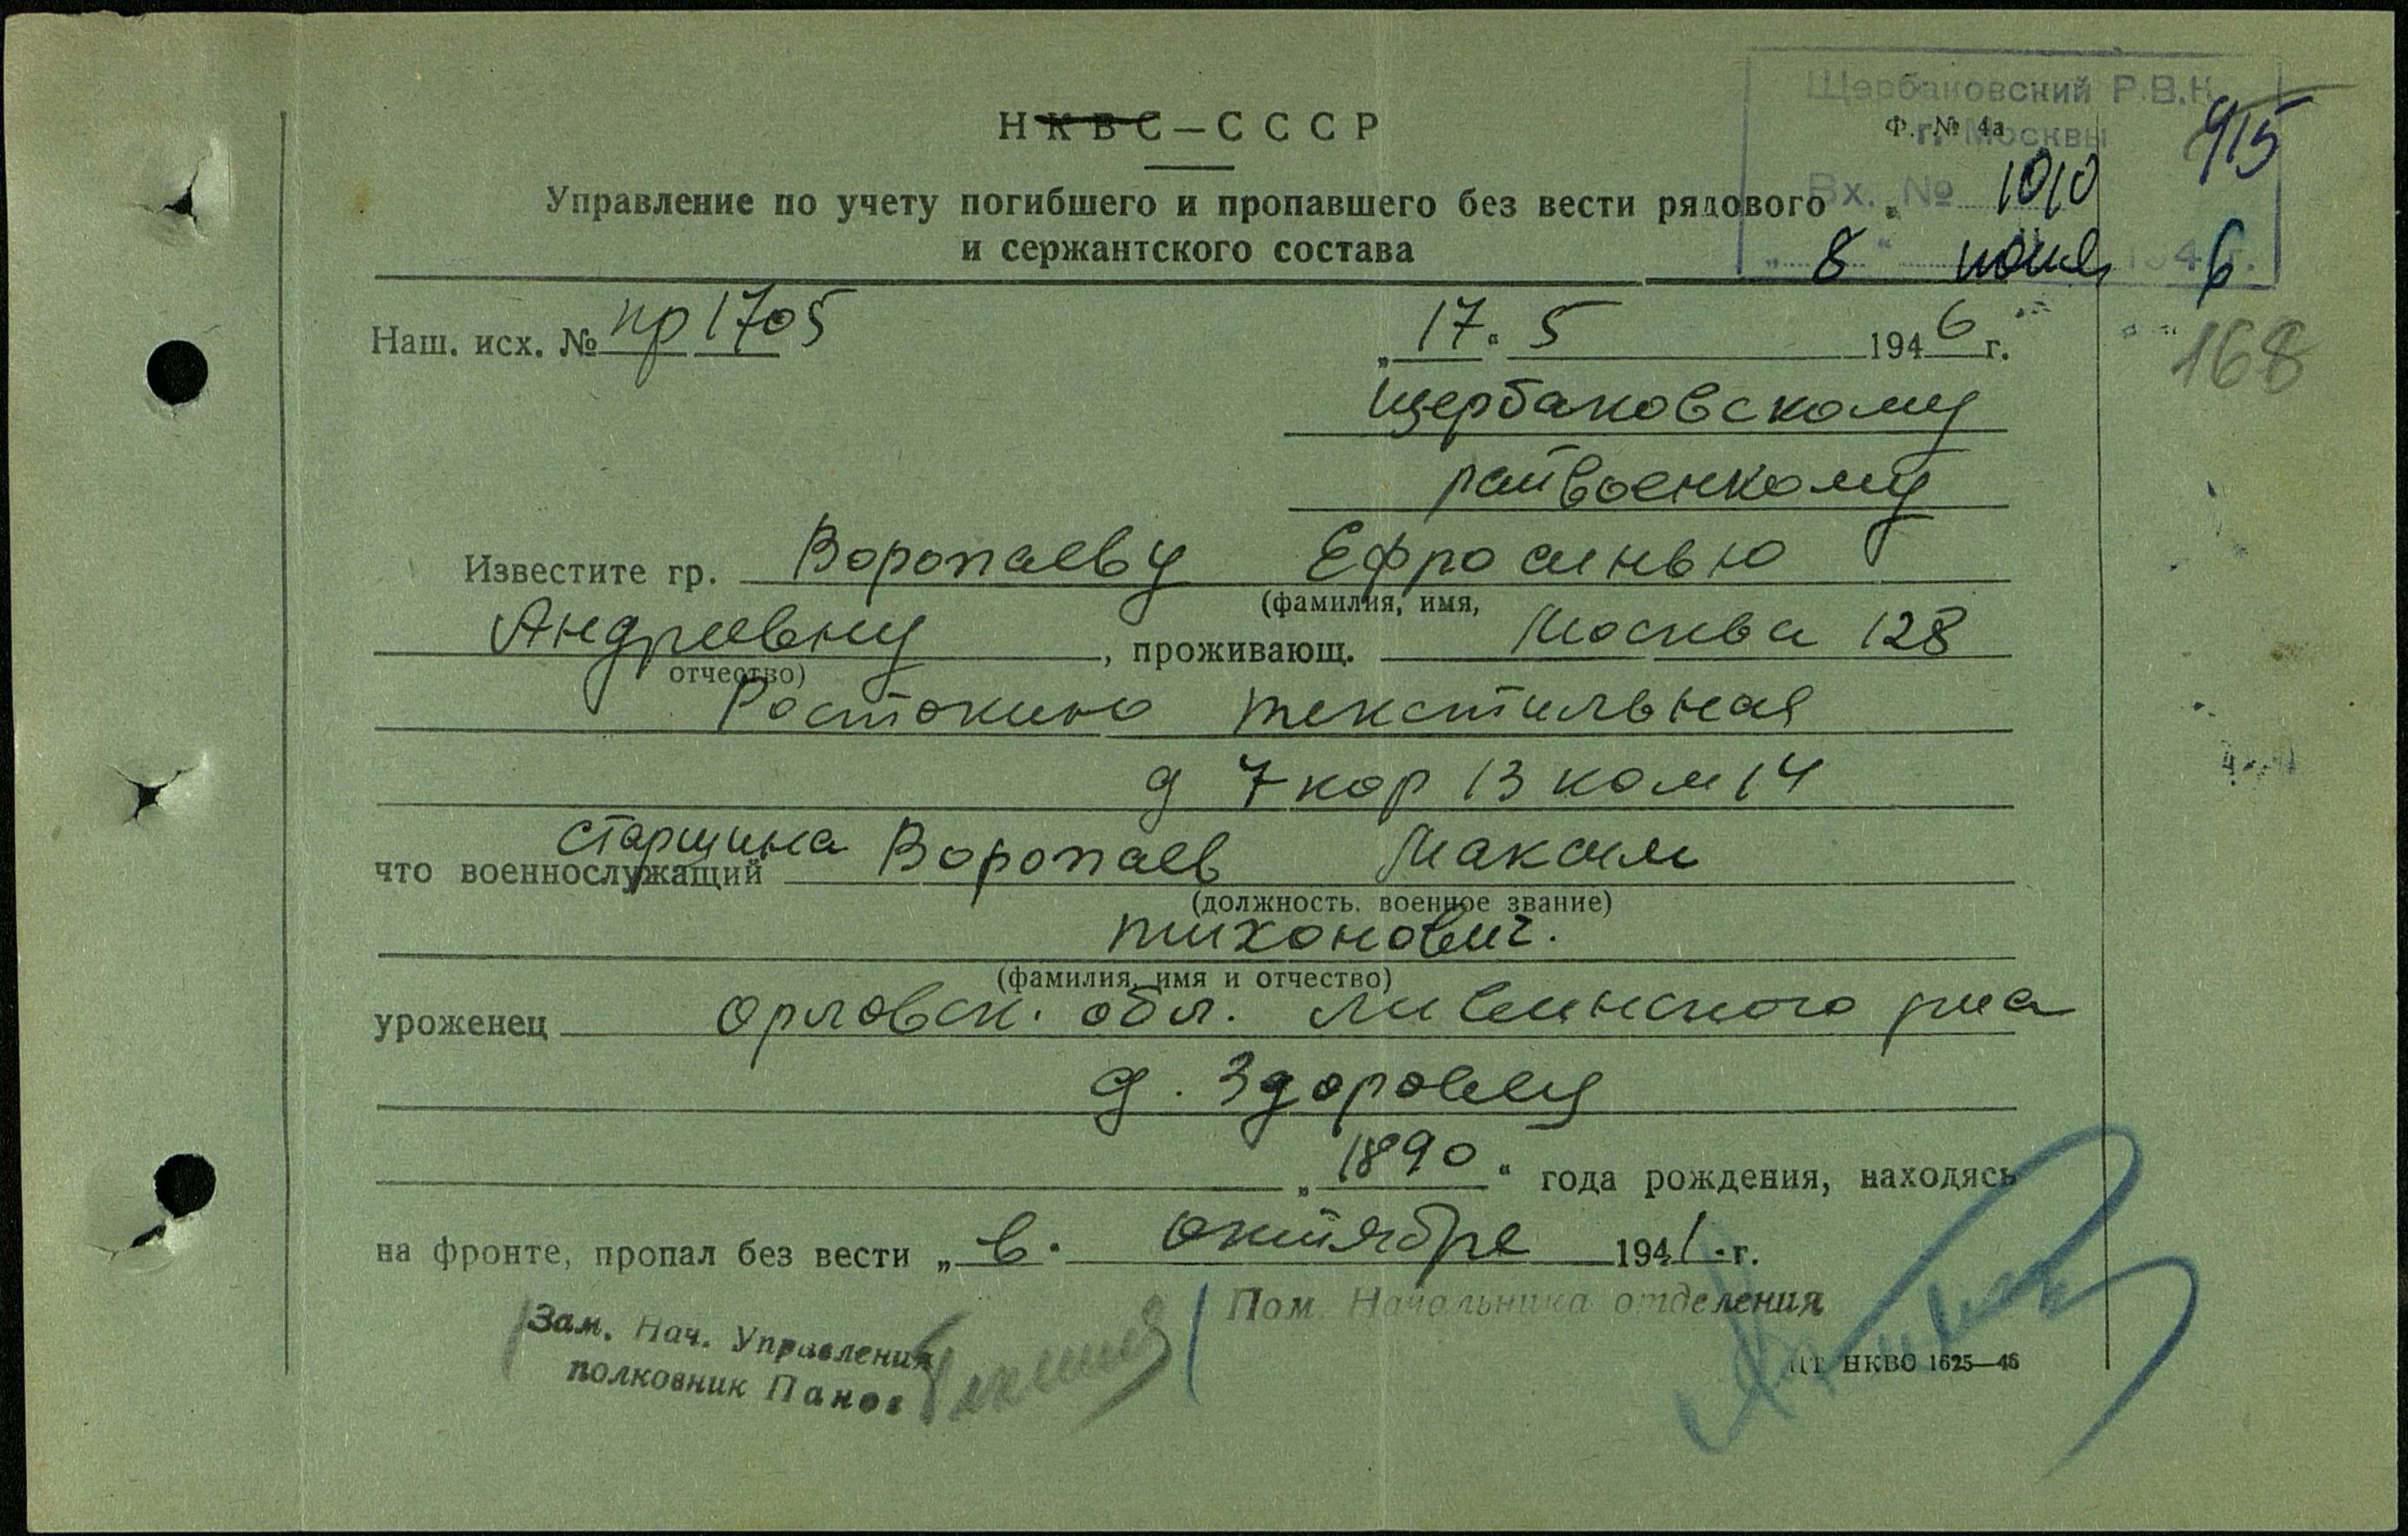 Щербаковский Р.В.К.
г. Москвы
Вх. № 1010
„8“ июня 1946 г.
915
168
НКВС—СССР
Ф. № 4а
Управление по учету погибшего и пропавшего без вести рядового
и сержантского состава
Наш. исх. № пр 1705
„17“ 5 1946 г.
Щербаковскому
райвоенкому
Известите гр. Воропаеву Ефросинью
(фамилия, имя,
Андреевну, проживающ. Москва 128
отчество)
Ростокино текстильная
д 7 кор 13 ком 14
старшина
что военнослужащий Воропаев Максим
(должность, военное звание)
тихонович.
(фамилия, имя и отчество)
уроженец Орловск. обл. Ливинского р-на
д. Здоровец
„1890“ года рождения, находясь
на фронте, пропал без вести „в“ октябре 1941 г.
Зам. Нач. Управления
полковник Панов
Пом. Начальника отделения
ЦТ НКВО 1625—46